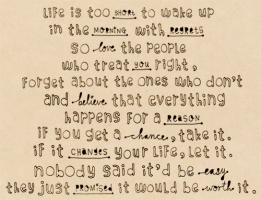 Life is too short to wake up
in the morning with regrets
so love the people
who treat you right,
forget about the ones who don't
and believe that everything
happens for a reason.
if you get a chance, take it.
if it changes your life, let it.
nobody said it'd be easy
they just promised it would be worth it.